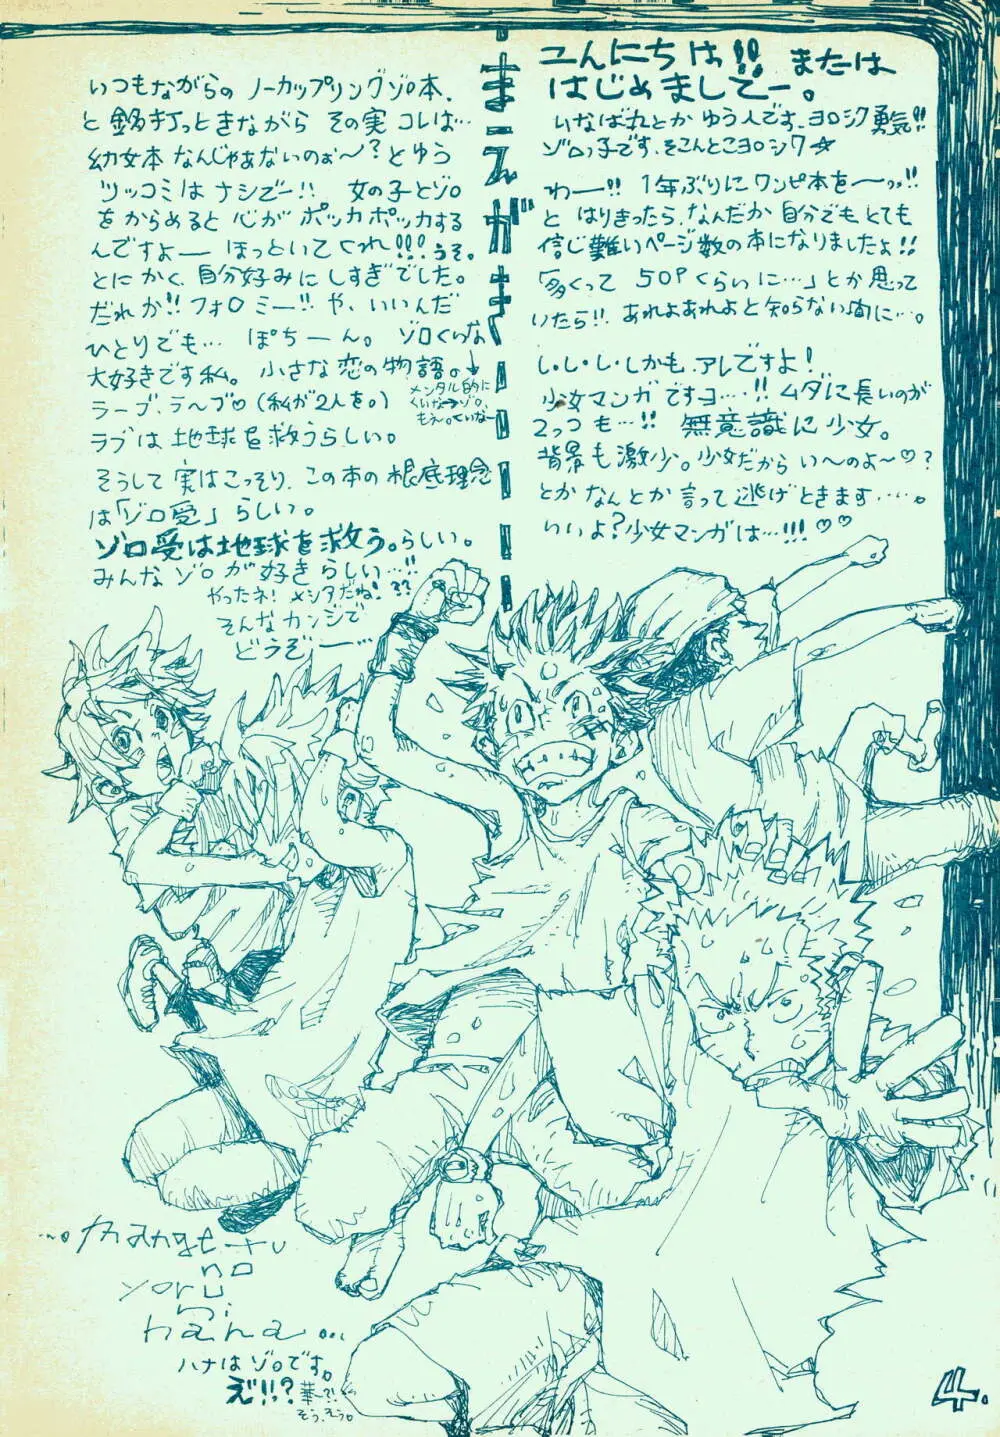 まえがき
こんにちわ!! または
はじめましてー。
いなば丸とかゆう人です、ヨロシク勇気!!
ゾロっ子です、そこんとこヨロシク☆
わー!! 1年ぶりにワンピ本をーっっ!!
と はりきったら、なんだか自分でもとても
信じ難いページ数の本になりましたよ!!
「多くって 50Pくらいに…」とか思って
いたら!! あれよあれよと知らない間に…。
し・し・し・しかも、アレですよ!
少女マンガですヨ…!! ムダに長いのが
2つも…!! 無意識に少女。
背景も激少。少女だから い〜のよ〜♡?
とかなんとか言って逃げときます……。
いいよ?少女マンガは…!!! ♡♡
いつもながらの ノーカップリングゾロ本、
と銘打っときながら その実 コレは…
幼女本なんじゃあないのぉ〜?とゆう
ツッコミは ナシでー!! 女の子とゾロ
をからめると 心が ポッカポッカする
んですよー ほっといてくれ!!! うそ。
とにかく、自分好みにしすぎでした。
だれか!! フォロミー!! や、いいんだ
ひとりでも… ぽちーん。 ゾロくいな
大好きです私。 小さな恋の物語。
メンタル的に
くいな→ゾロ、
もえ。くいなー
ラーブ、ラ〜ブ♡(私が2人を。)
ラブは 地球を救うらしい。
そうして 実はこっそり、この本の根底理念
は「ゾロ受」らしい。
ゾロ受は地球を救う。らしい。
みんな ゾロが好きらしい…!!
やったネ! メシアだね!??
そんなカンジで
どうぞー…
...mange-tu
no
yoru
ni
hana...
ハナはゾロです。
え!!? 華ー?!
そう、そう。
4.